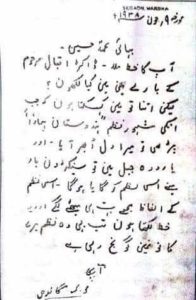 SEGAON WARDHA
۹ جون ۱۹۳۸
بھائی محمد حسین -
آپ کا خط ملا - ڈاکٹر اقبال مرحوم
کے بارے میں میں کیا لکھوں؟
لیکن اتنا تو میں کہہ سکتا ہوں کہ جب
انکی مشہور نظم "ہندوستان ہمارا"
پڑھی تو میرا دل بھر آیا - اور
یاروڈہ جیل میں تو سینکڑوں بار
میں نے اسی نظم کو گایا ہوگا - اسی نظم
کے الفاظ مجھے بہت ہی میٹھے لگے اور یہ
خط لکھتا ہوں تب بھی وہ نظم میرے
کانوں میں گونج رہی ہے
آپکا
گاندھی